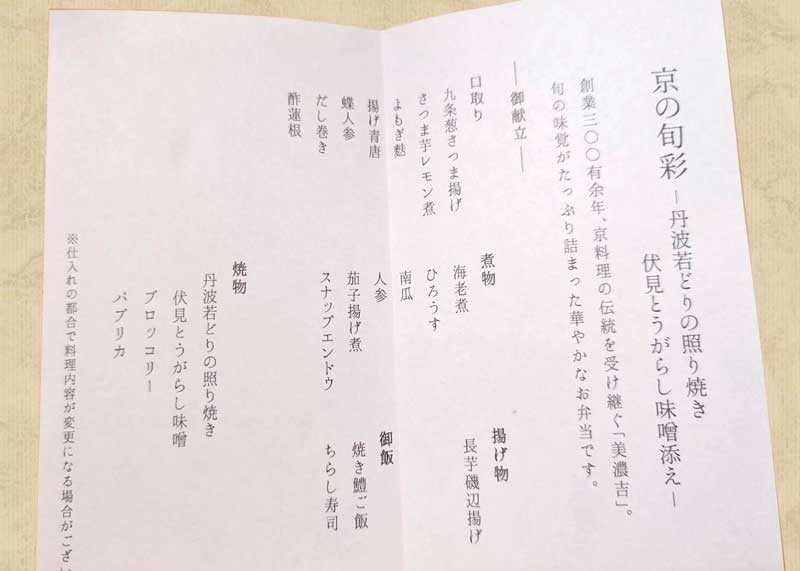 京の旬彩 ―丹波若どりの照り焼き
伏見とうがらし味噌添え―
創業三〇〇有余年、京料理の伝統を受け継ぐ「美濃吉」。
旬の味覚がたっぷり詰まった華やかなお弁当です。
―御献立―
口取り
九条葱さつま揚げ
さつま芋レモン煮
よもぎ麩
揚げ青唐
蝶人参
だし巻き
酢蓮根
煮物
海老煮
ひろうす
南瓜
人参
茄子揚げ煮
スナップエンドウ
揚げ物
長芋磯辺揚げ
御飯
焼き鱧ご飯
ちらし寿司
焼物
丹波若どりの照り焼き
伏見とうがらし味噌
ブロッコリー
パプリカ
※仕入れの都合で料理内容が変更になる場合がござい